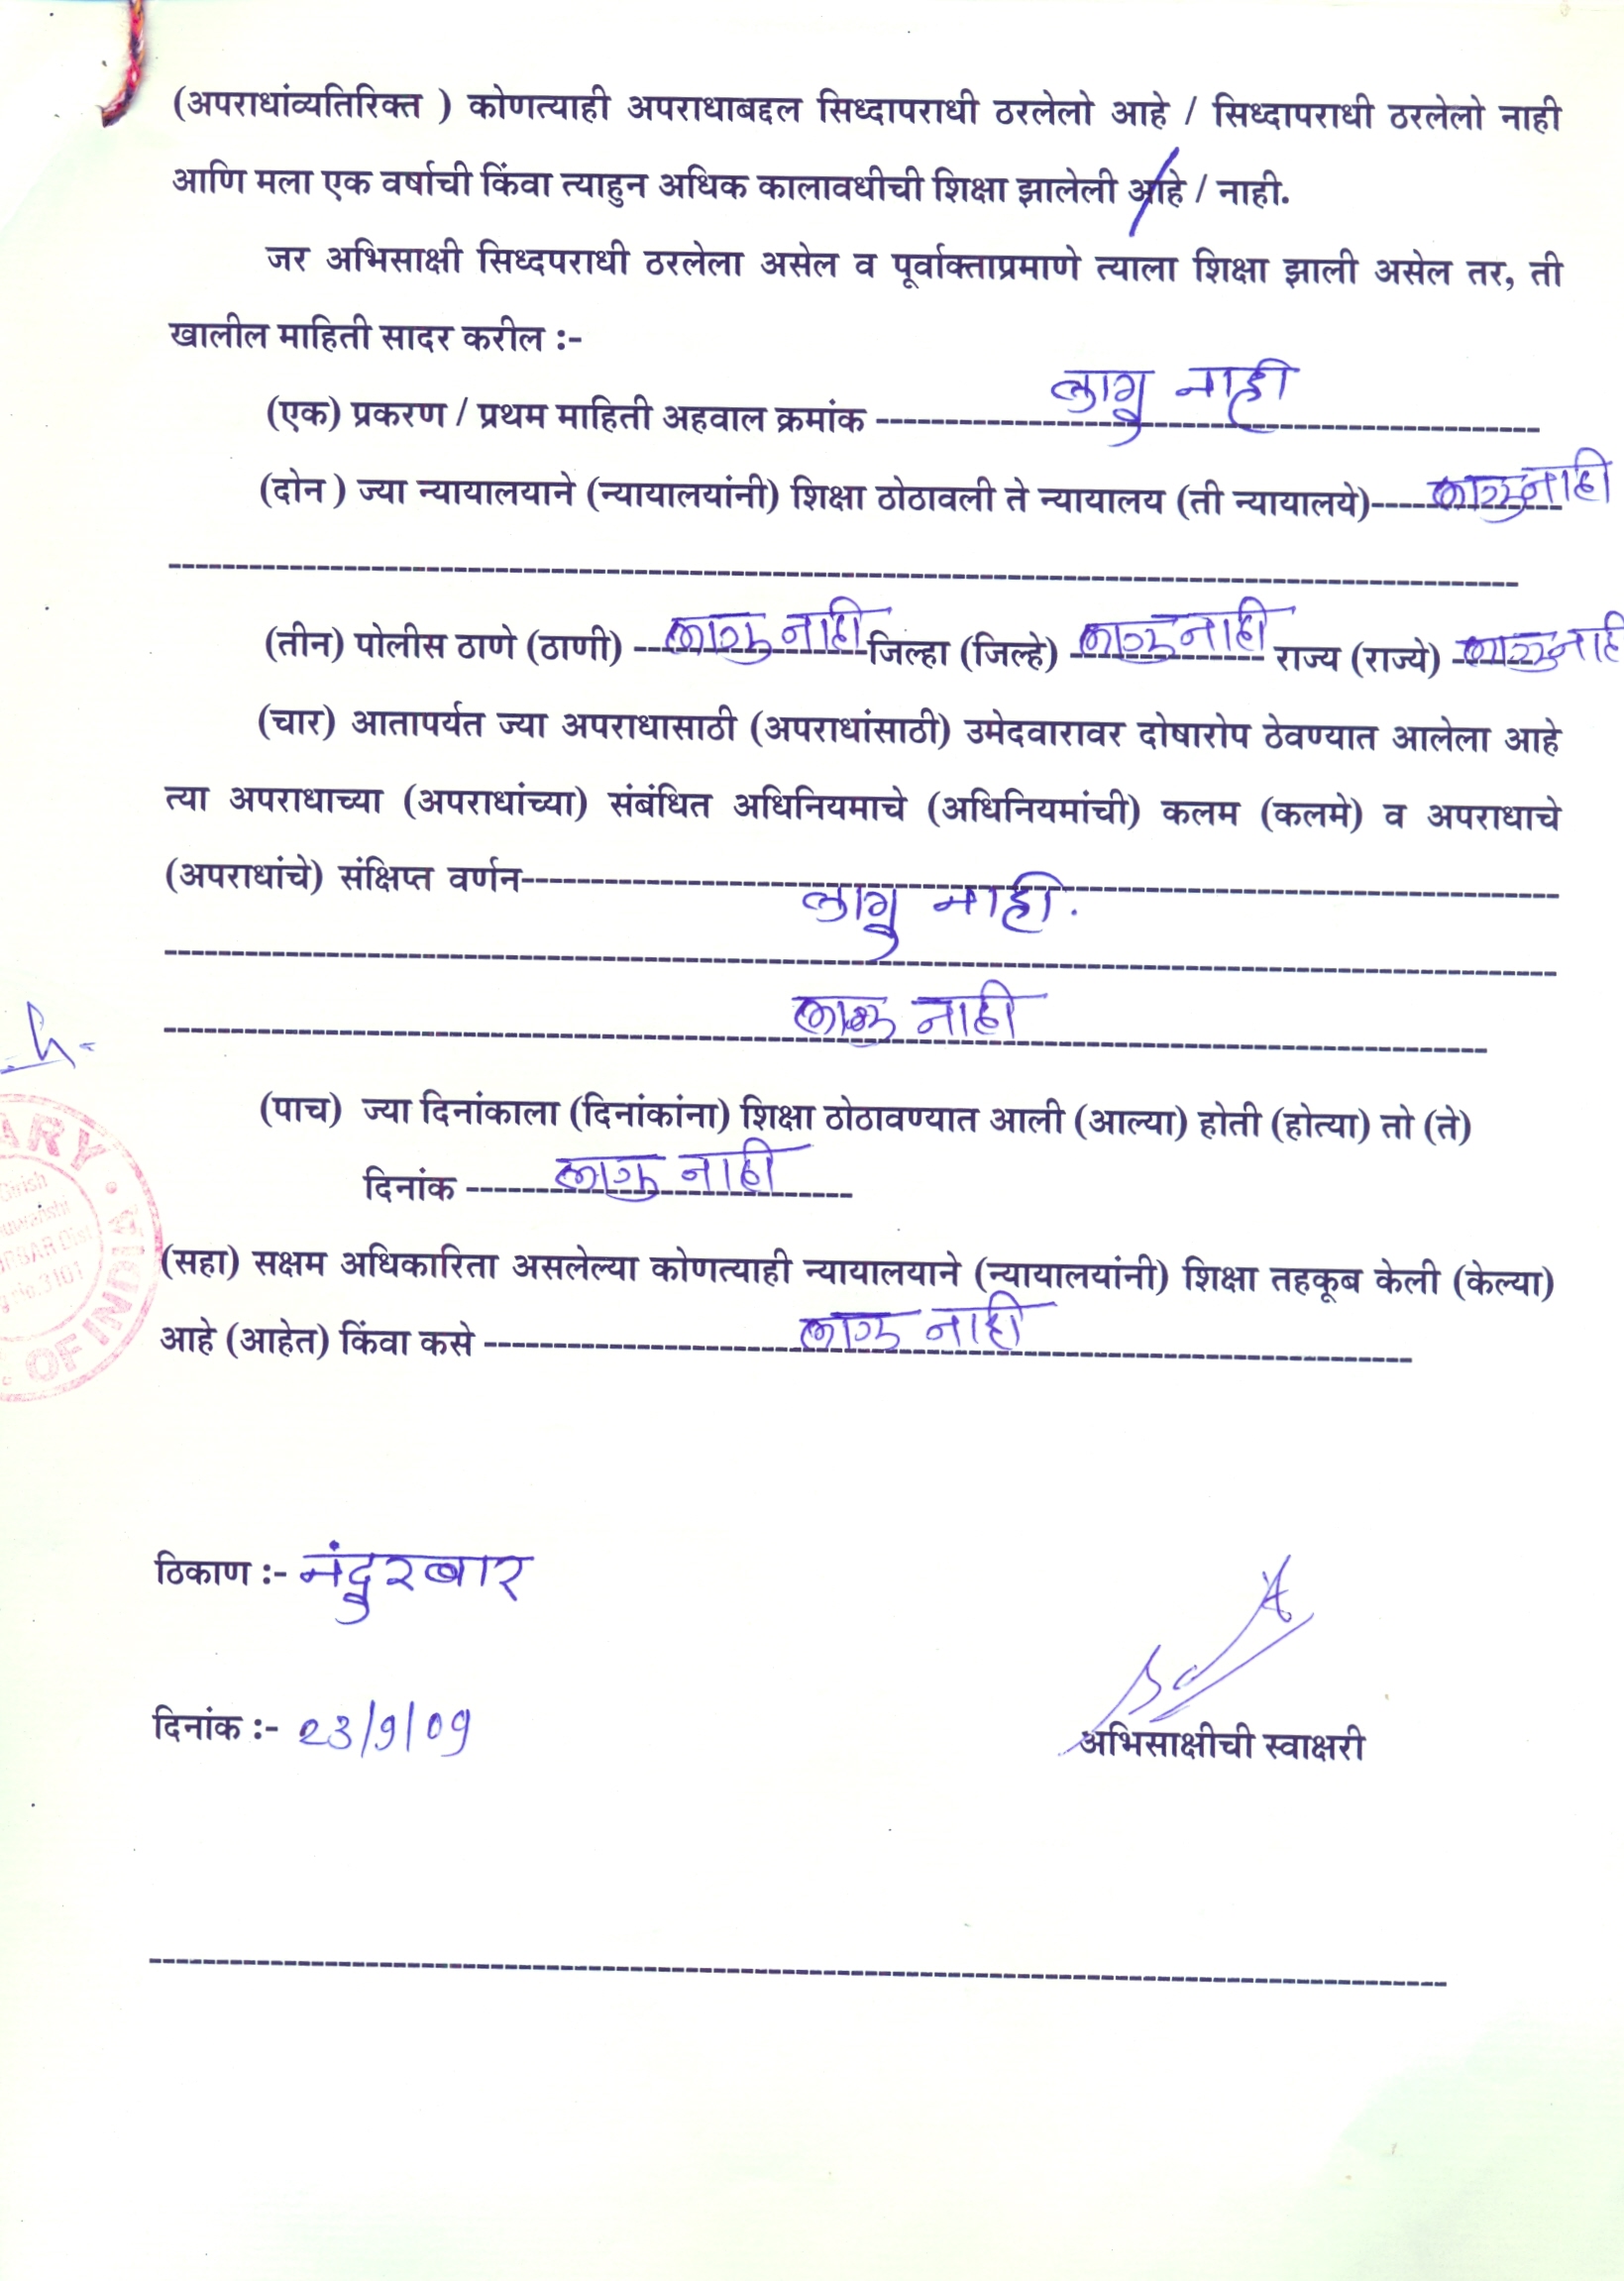 (अपराधांव्यतिरिक्त ) कोणत्याही अपराधाबद्दल सिध्दापराधी ठरलेलो आहे / सिध्दापराधी ठरलेलो नाही
आणि मला एक वर्षाची किंवा त्याहुन अधिक कालावधीची शिक्षा झालेली आहे / नाही.
जर अभिसाक्षी सिध्दपराधी ठरलेला असेल व पूर्वाक्ताप्रमाणे त्याला शिक्षा झाली असेल तर, ती
खालील माहिती सादर करील :-
(एक) प्रकरण / प्रथम माहिती अहवाल क्रमांक लागु नाही
(दोन ) ज्या न्यायालयाने (न्यायालयांनी) शिक्षा ठोठावली ते न्यायालय (ती न्यायालये) लागु नाही
(तीन) पोलीस ठाणे (ठाणी) लागु नाही जिल्हा (जिल्हे) लागु नाही राज्य (राज्ये) लागु नाही
(चार) आतापर्यत ज्या अपराधासाठी (अपराधांसाठी) उमेदवारावर दोषारोप ठेवण्यात आलेला आहे
त्या अपराधाच्या (अपराधांच्या) संबंधित अधिनियमाचे (अधिनियमांची) कलम (कलमे) व अपराधाचे
(अपराधांचे) संक्षिप्त वर्णन
लागु नाही.
लागु नाही
(पाच) ज्या दिनांकाला (दिनांकांना) शिक्षा ठोठावण्यात आली (आल्या) होती (होत्या) तो (ते)
दिनांक लागु नाही
(सहा) सक्षम अधिकारिता असलेल्या कोणत्याही न्यायालयाने (न्यायालयांनी) शिक्षा तहकूब केली (केल्या)
आहे (आहेत) किंवा कसे लागु नाही
OF INDIA
ठिकाण :- नंदुरबार
दिनांक :- 23/9/09
अभिसाक्षीची स्वाक्षरी